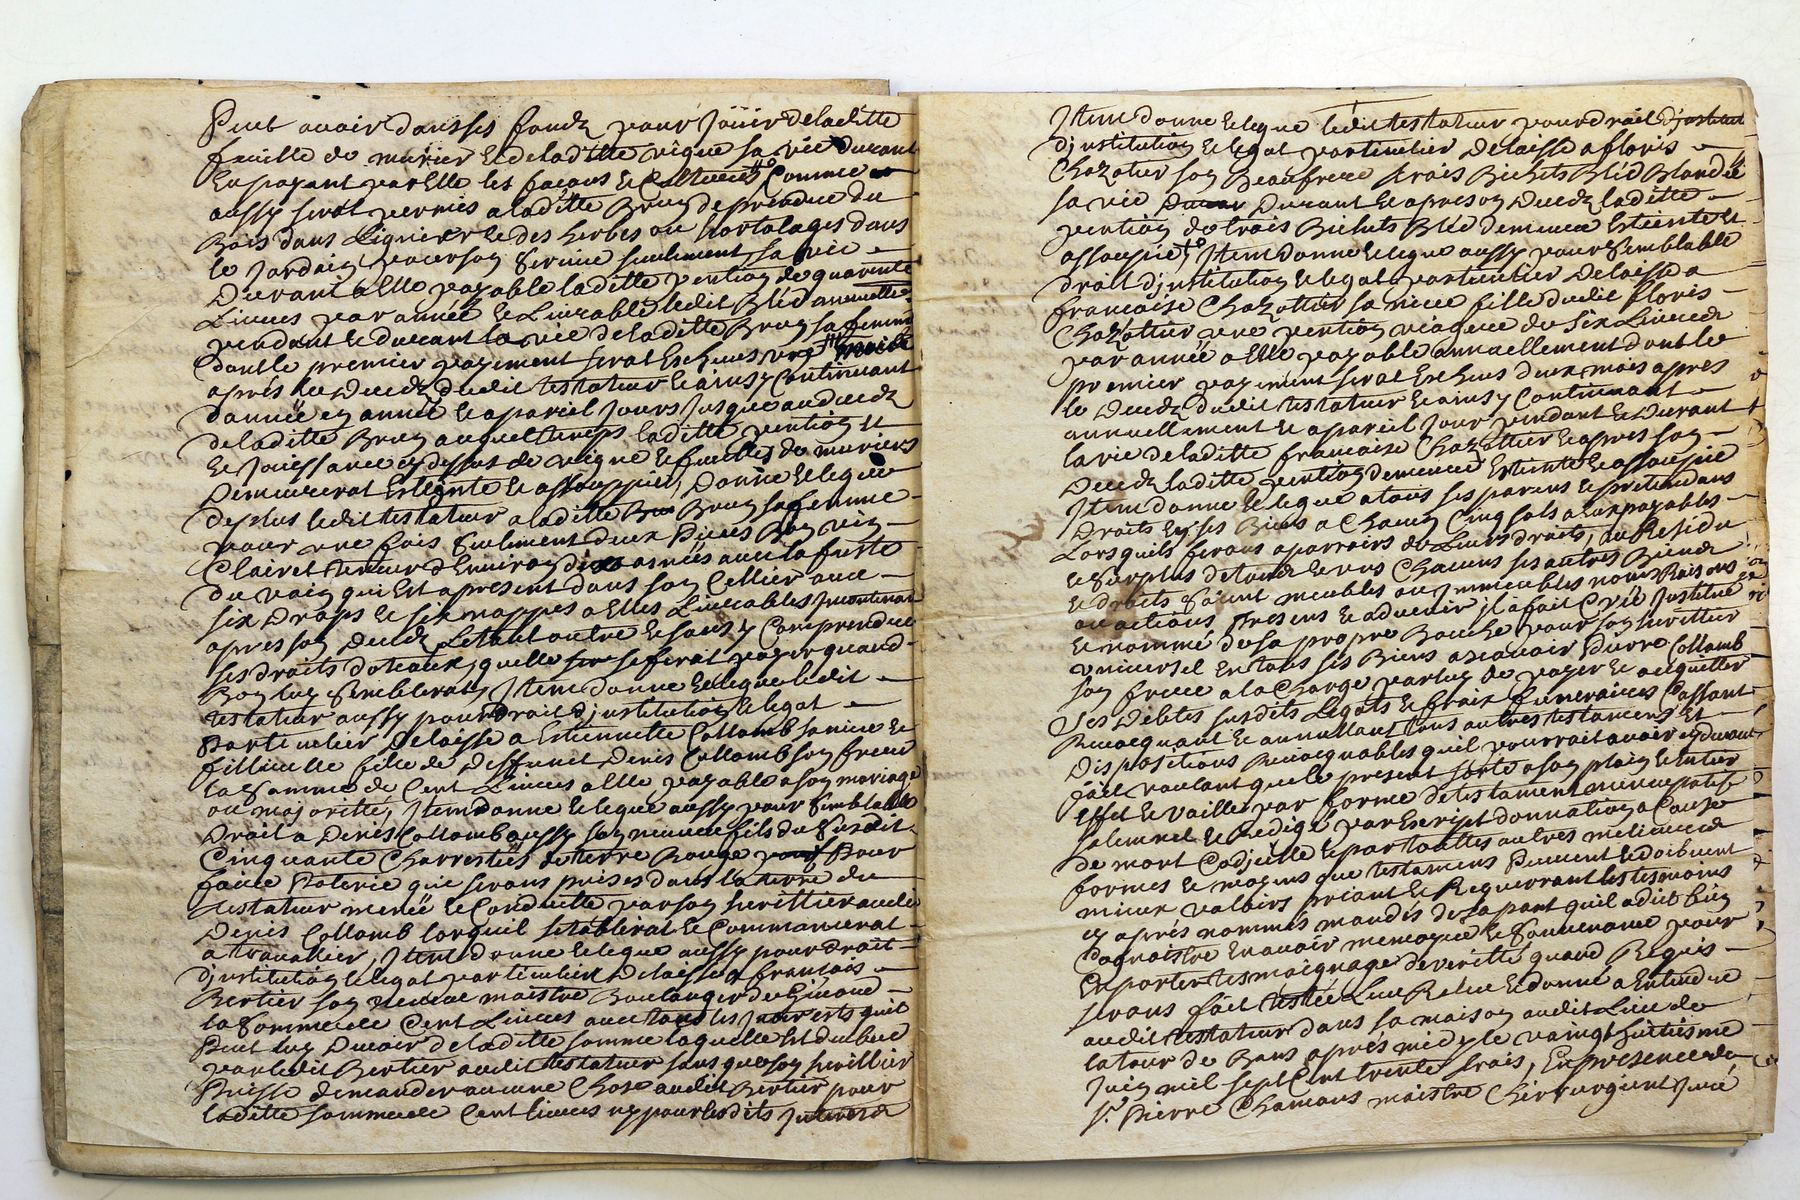 Peut avoir dans ses fondz pour Joüir de laditte
feuille de murier & de laditte vigne sa vie durant
En payant par Elle les façons & Cultures Comme
aussy serat permis a laditte Brun de prendre du
Bois dans Lignier & des herbes ou hortolages dans
le Jardain pour son Service seulement sa vie
Durant a Elle payable laditte pention de quarente
Livres par année & Livrable ledit Bléd annuelle.
pendant & durant la vie de laditte Brun sa femme
dont le premier payement serat Escheus une
après le Decedz dudit testateur & ainsy Continuant
dannée en année & a pareil Jours Jusque au decedz
de laditte Brun auquel temps laditte pention et
& Joüissance cy dessus de vigne & feuilles de muriers
Demeurerat Esteinte & assouppie, Donne & legue
de plus ledit testateur a laditte Brun sa femme
pour une fois seulement deux Pieces Bon vin
Clairet teneur d'Environ six anneés avec la fuste
du vain qui Est a present dans son Cellier avec
six Draps & six nappes a Elles Livrables Incontinan
apres son decedz Letout outre & sans y Comprendre
ses droits dotcaux, quelle se ferat payer quand
Bon luy Semblerat, Item donne & legue ledit
testateur aussy pour droit d'Institution & legat
Particulier Delaisse a Estiennette Collomb sa niece &
fillieulle fille de Deffunct Denis Collomb son frere
la Somme de Cent Livres a Elle payable a son mariage
ou majorité, Item donne & legue aussy pour Semblable
Droit a Denis Collomb aussy son neveu fils du Susdit
Cinquante Charrettées de terre Rouge Pour
faire Poterie qui serons prises dans la terre du
testateur menée & Conduitte par son heritier audit
Denis Collomb lorquil sétablirat & Commancerat
a travallier, Item donne & legue aussy pour droit
d'Institution & legat particulier Delaisse a françois
Bertier son neveu maistre Boulanger de Givord
la Somme de Cent Livres avec tous les Interests quil
Peut luy Devoir de laditte somme laquelle Est dubue
par ledit Bertier audit testateur sans que son heritier
Puisse demander aucune Chose audit Bertier pour
laditte somme de Cent livres ny pour lesdits Interestz
Item donne & legue ledit testateur pour droit
d'Institution & legat particulier Delaisse a floris
Chazotier son Beaufrere trois Bichets Bléd Blondée
sa vie Durant & apres son Decedz laditte
pention de trois Bichets Bléd demeure Esteinte &
assoupie, Item donne & legue aussy pour Semblable
droit d'Institution & legat particulier Delaisse a
francoise Chazottier sa niece fille dudit floris
Chazottier une pention viagere de Six Livres
par année a Elle payable annuellement dont le
premier payement serat Escheus deux mois apres
le Decedz dudit testateur & ainsy Continuant
annuellement & a pareil Jour pendant & Durant
la vie de laditte francoise Chazottier & apres son
Decedz laditte pention demeure Esteinte & assoupie
Item donne & legue a tous ses parens & pretendans
Droits En ses Biens a Chacun Cinq sols a eux payables
Lors quils ferons aparroirs de Leurs droits, au Residu
& Surplus de tous & uns Chacuns ses autres Biens
& droits soient meubles ou Immeubles noms Raisons
ou actions Presens & advenir, Il a fait Créé Institué
& nommé de sa propre Bouche pour son heritier
universel En tous ses Biens ascavoir Pierre Collomb
son frere a la Charge par luy de payer & acquitter
Ses Debtes susdits Legats & fraix funeraires Cassant
Revocquant & annullant tous autres testamens Et
Dispositions Revocquables quil pourrait avoir cy devant
fait voulant que le present sorte a son plain & Entier
Effet & vaille par forme de testament nuncupatif
solemnel & Redigé par Escript donnation a Cause
de mort Codicille & par touttes autres meilieures
formes & moyens que testamens Peuvent & doibvent
mieux valoirs priant & Requerrant les tesmoins
cy après nommés mandés de sa part quil a dit bien
Cognoistre En avoir memoyre & Souvenance pour
En porter tesmoignage de verité quand Requis
serons fait leue Releue & donné a Entendre
audit testateur dans sa maison audit Lieu de
latour de Bans après midy le vaingt huitiesme
Juin mil sept Cent trente trois, En presence de
Sr. Pierre Chamous maistre Chirurgient Juré